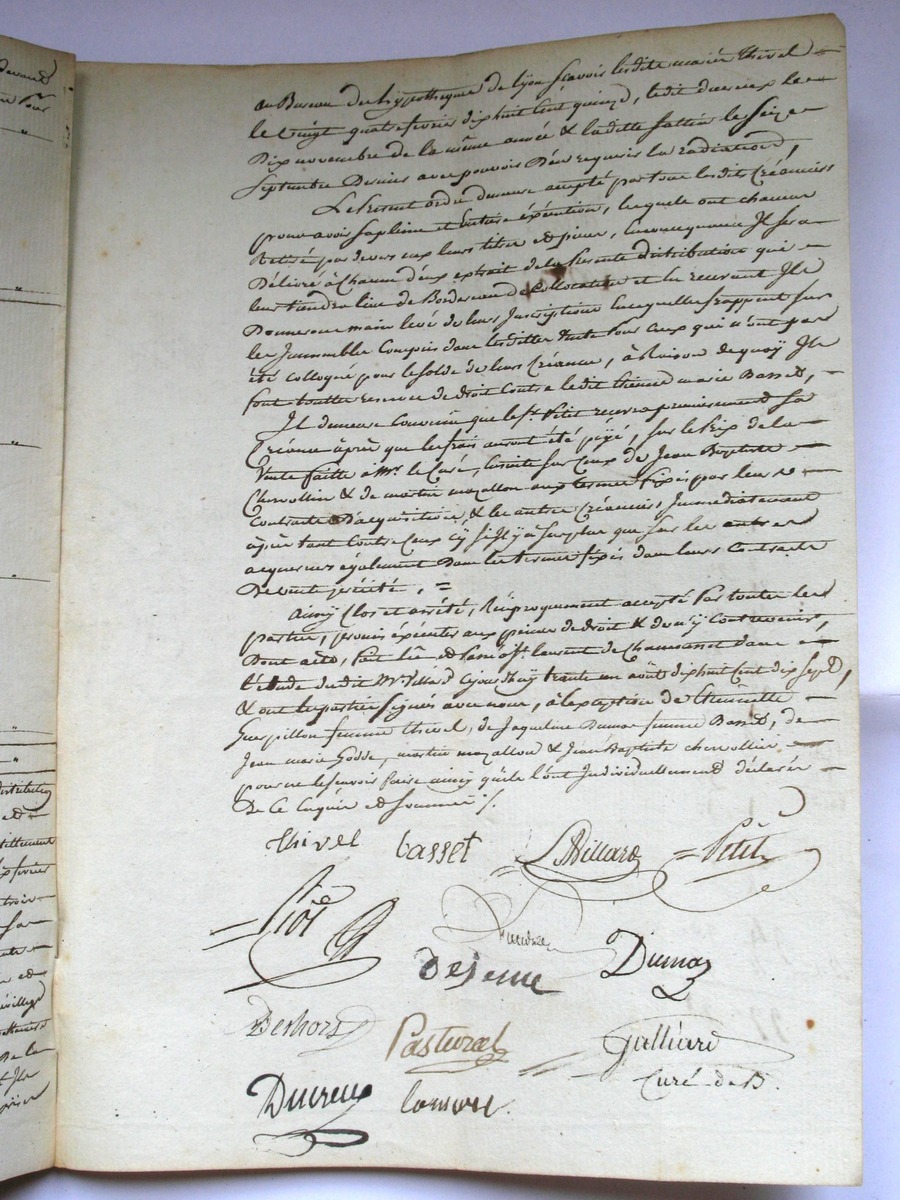 au Bureau des hypotheques de lyon scavoir lesdits mariés thivel =
le vingt quatre fevrier dix huit cent quinze, ledit ducreux le =
Dix novembre de la même année & laditte le seize =
Septembre Dernier avec pouvoir D'en requerir la radiation,
Le present ordre demeure accepté par tous lesdits Créanciers
pour avoir sa pleine et Entiere éxécution, lesquels ont chacun
Retiré par devers eux leurs titres et pieces, En consequence Il sera
Délivré à Chacun d'eux extrait de la presente distribution qui =
leur tiendra lieu de Bordereau de Collocation et en recevant Ils
Donneront main levée de leurs Inscriptions lesquelles frappent sur
les Immeubles Compris dans lesdittes Ventes pour ceux qui n'ont pas
été colloqués pour le solde de leurs Créances, à Raison de quoy Ils
font toutte reserve de droit Contre ledit Etienne marie Basset, =
Il demeure Convenu que le sr. Petit recevra premierement sa
Créance après que les frais auront été payés, sur le Prix de la
Vente faitte à Mr. le Curé, Ensuite sur Ceux de Jean Baptiste =
Chervollin & de martin mazallon aux termes fixés par leurs =
Contracts D'acquisition, & les autres Créanciers Immédiatement
après tant Contre Ceux cÿ s'Il y a surplus que sur les autres
acquereurs également Dans les termes fixés dans leurs Contracts
Devant précités, =
Ainsy Clos et arrété, Réciproquement accepté Par touttes les
parties, promis éxécuter aux peines de droit & de n'y Contrevenir,
Dont acte, fait lû et Passé à St. laurent de Chamousset dans =
l'étude dudit Me. Villard Cejourd'huÿ trente un aôut dix huit Cent dix Sept,
& ont les parties signés avec nous, à l'exception de Etiennette =
Guerpillon femme thivel, de Jaqueline Dumas femme Basset, de =
Jean marie Godde, martin mazallon & Jean Baptiste chervollin =
pour ne le scavoir faire ainsy qu'ils l'ont Individuellement déclaré =
De Ce Enquis et Sommés /.
thivel basset Villard = Petit
Dejeme Dumas
Deshors Pastural Galliard
Curé de B.
Ducreux